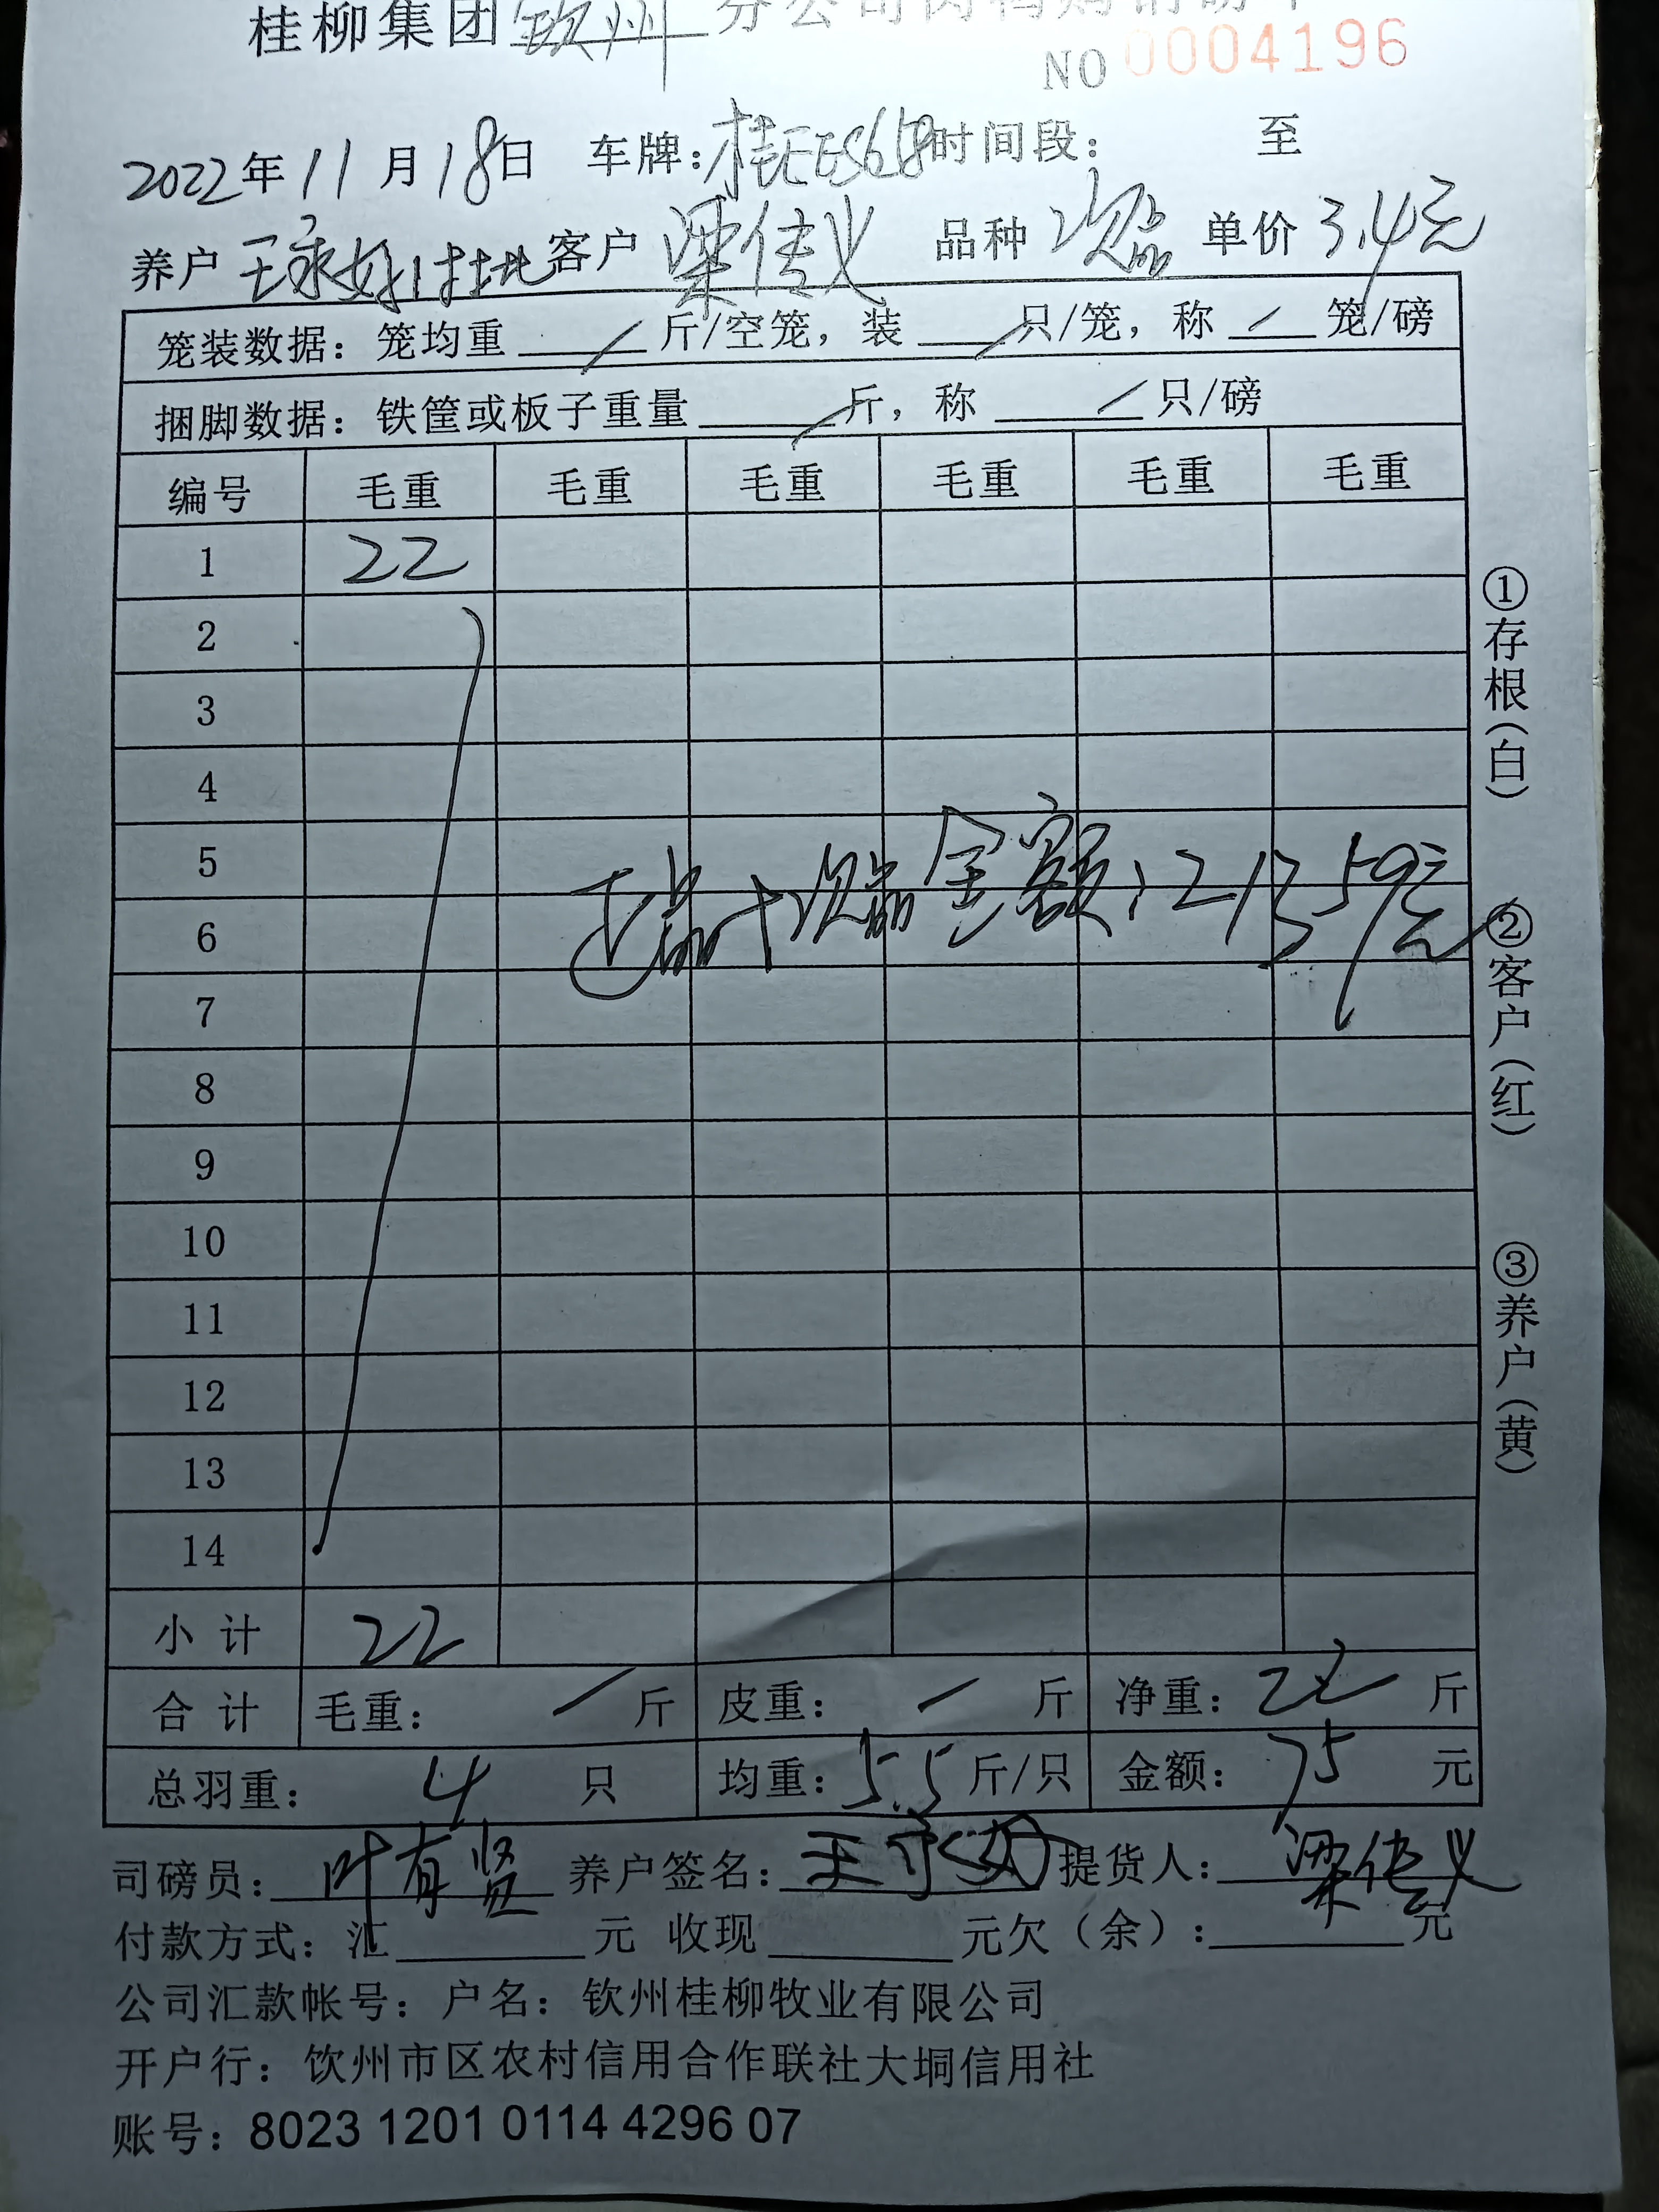 桂柳集团钦州分公司肉鸭购销磅单
NO 0004196
2022年11月18日 车牌: 时间段: 至
养户 客户 梁传义 品种 次品 单价 3.4元
笼装数据: 笼均重 / 斤/空笼, 装 / 只/笼, 称 / 笼/磅
捆脚数据: 铁筐或板子重量 / 斤, 称 / 只/磅
编号 毛重 毛重 毛重 毛重 毛重 毛重
1 22
2
3
4
5
正品+次品金额:21359元
6
7
8
9
10
11
12
13
14
小计 22
合计 毛重: / 斤 皮重: / 斤 净重: 22 斤
总羽重: 4 只 均重: 5.5 斤/只 金额: 75 元
司磅员: 叶有贤 养户签名: 提货人: 梁传义
付款方式: 汇 元 收现 元欠(余): 元
公司汇款帐号: 户名: 钦州桂柳牧业有限公司
开户行: 饮州市区农村信用合作联社大垌信用社
账号: 8023 1201 0114 4296 07
①存根(白)
②客户(红)
③养户(黄)